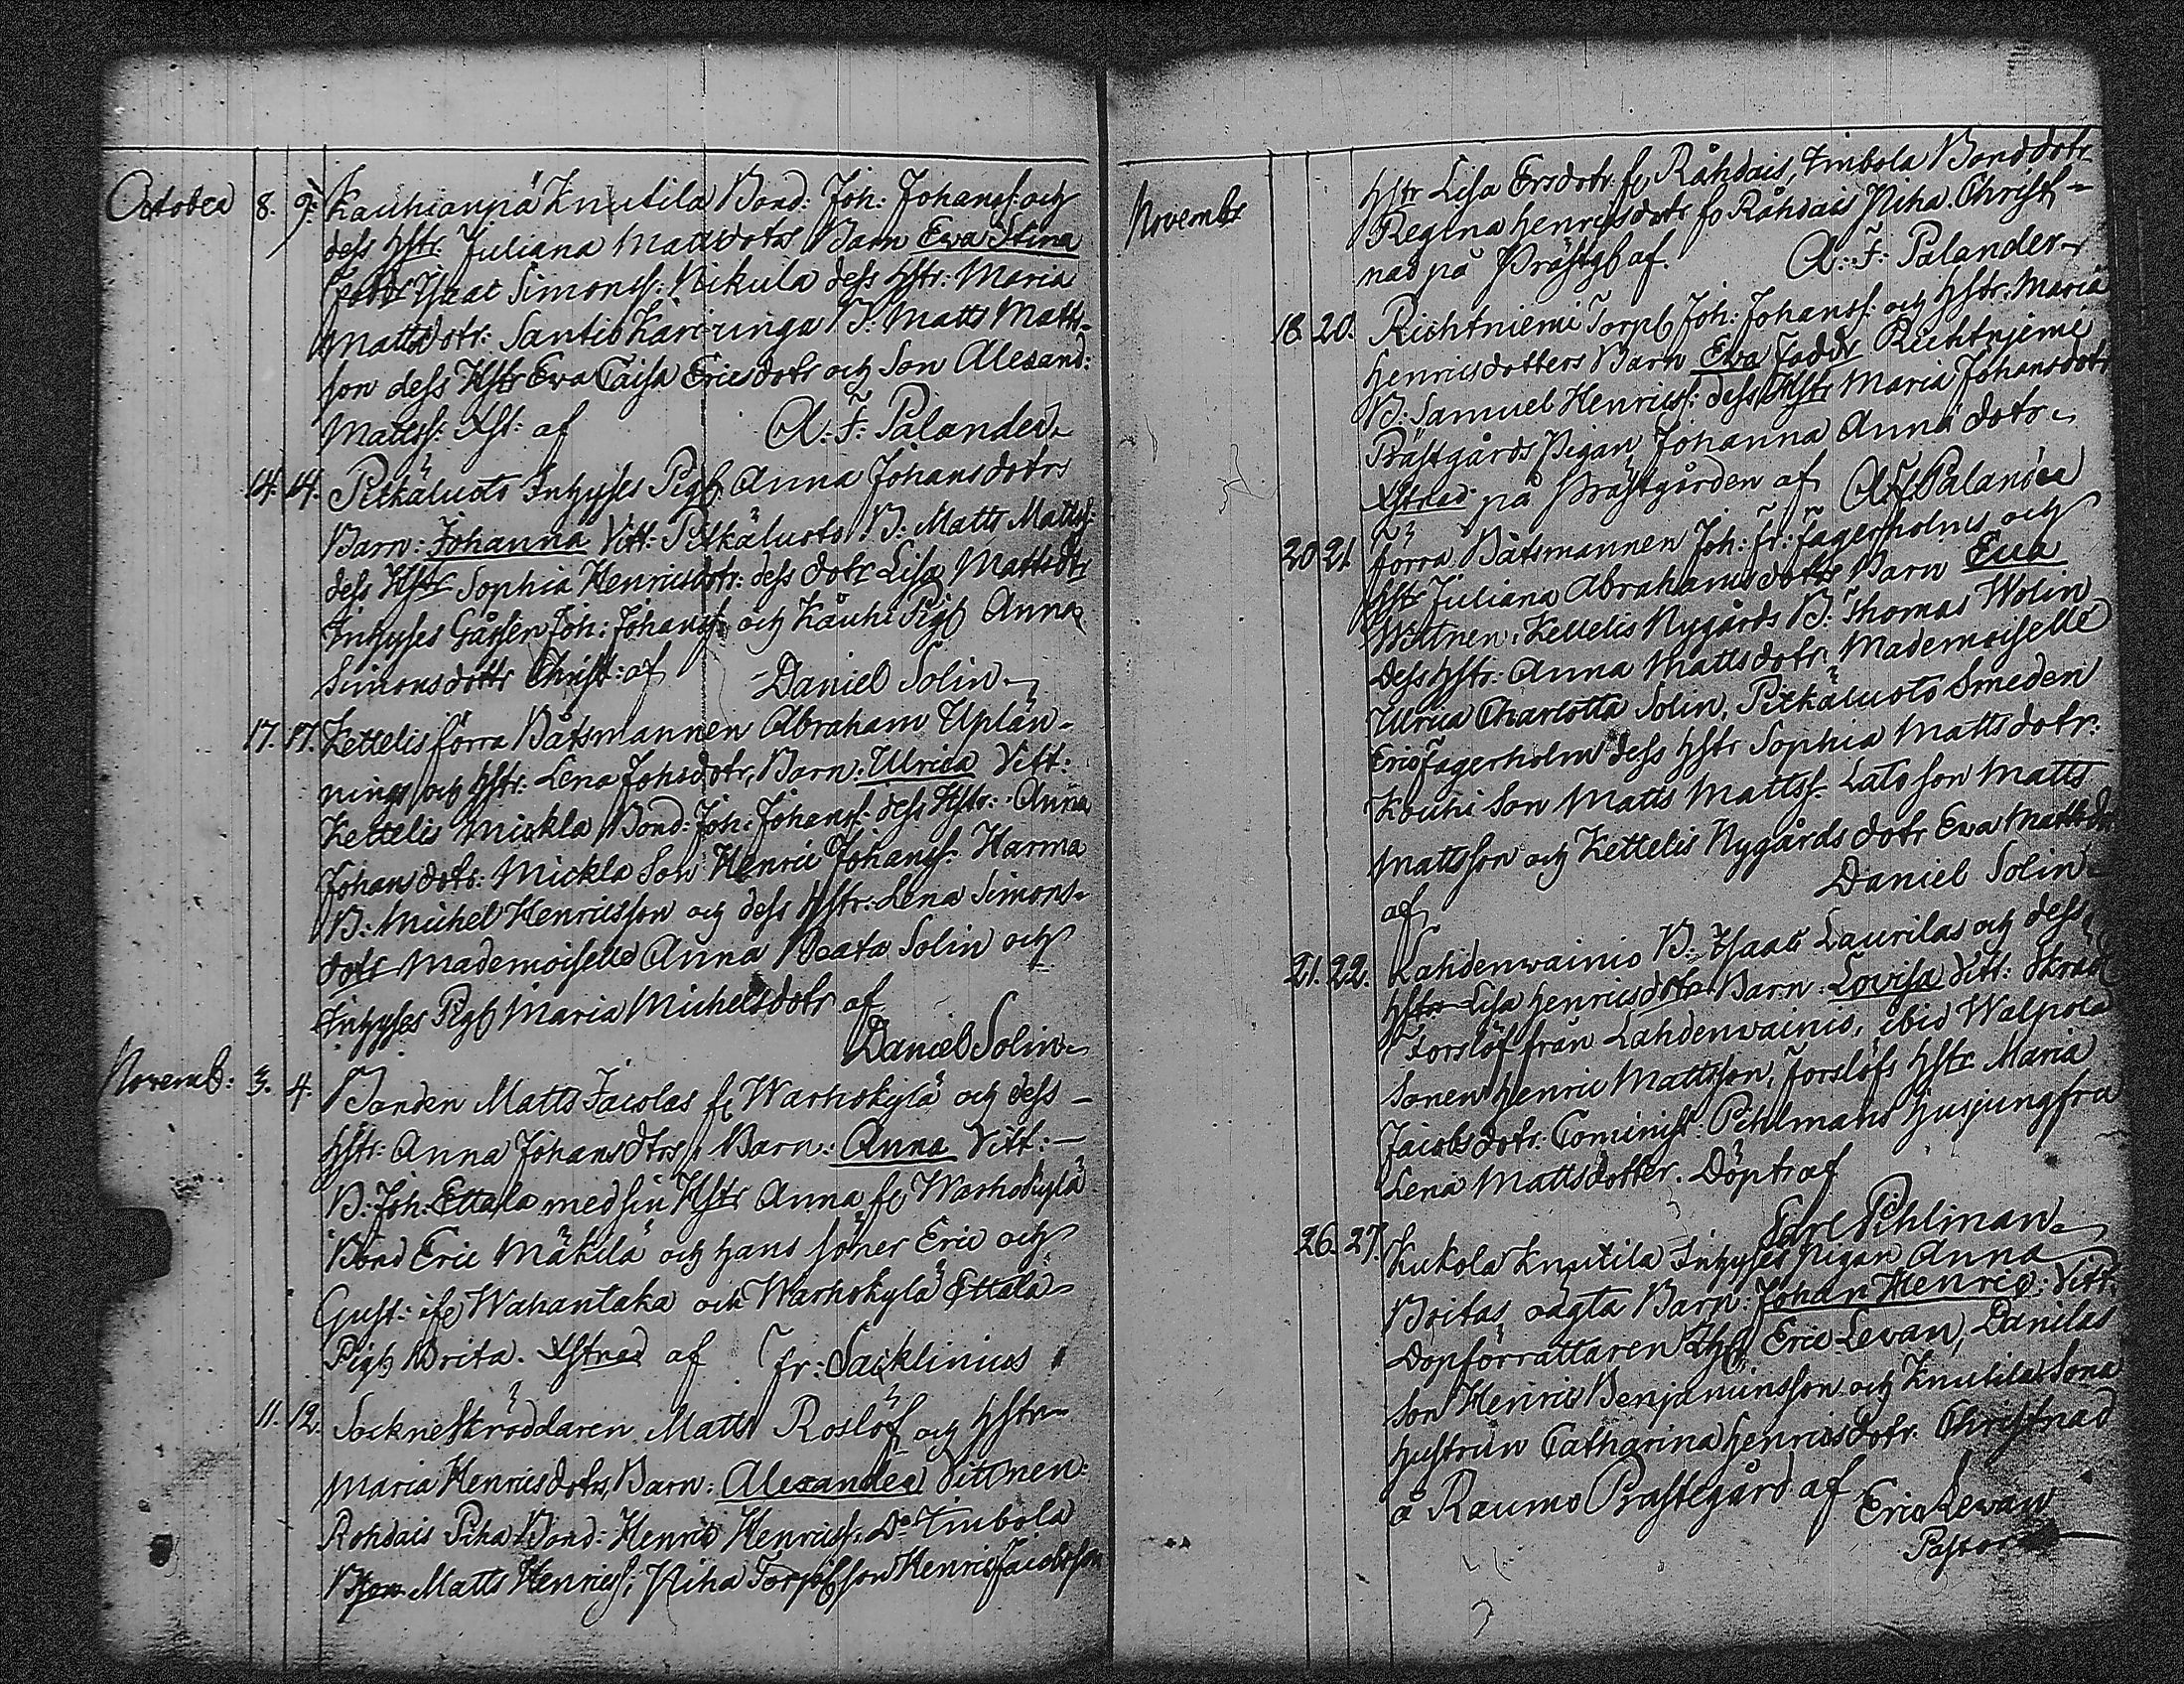 October 8. 9. Kauhianpä Knutila Bond: Joh: Johanss: och
dess hstr. Juliana Mattsdoters Barn Ewa Stina
Isaac Simonss: Nikula dess hstr: Maria
Mattsdotr: Santio Kariringa B: Matts Matts-
son dess Hstr Eva Caisa Ericsdotr och Son Alexand:
Mattss: Xst: af A: F: Palander
14. 14. Pitkäluoto Inhyses Pig: Anna Johansdotrs
Barn: Johanna Vitt: Pitkäluoto B: Matts Mattss:
dess Hstr Sophia Henricsdotr: dess dotr Lisa Mattsdtr
Inhyses Joh: Johanss: och Kauhi Pig: Anna
Simonsdottr Christ: af Daniel Solin
17. 17. Kettelis förra Båtsmannen Abraham Uplän-
nings och hstr: Lena Johsdotr, Barn: Ulrica Vitt:
Kettelis Mickla Bond: Joh: Johanss: dess Hstr: Anna
Johansdotr: Mickla Son Henric Johanss: Harma
B: Michel Henricsson och dess hstr: Lena Simons-
dotr Mademoiselle Anna Beata Solin och
Inhyses Pig: Maria Michelsdotr af
Daniel Solin
Novemb: 3. 4. Bonden Matts Jacolas fr Warhokylä och dess
hstr: Anna Johansdtrs Barn: Anna Vitt:
B: Joh: Ettala med sin Hstr Anna fr Warhokylä
Bond Eric Mäkilä och hans söner Eric och
Gust: ifr Wahantaka och Warhokylä Ettala
Pig: Brita. Xstnad af Fr: Sacklinius
11. 12. Sockneskräddaren Matts Roslöf och hstr
Maria Henricsdotrs, Barn: Alexander Vittnen:
Rohdais Piha Bond: Henric Henricss: Do Timbola
Bson Matts Henricss; Piha Torp: son Henric Jacobsson
Novembr hstr Lisa Ersdotr fr Råhdais, Timbola Bonddotr
Regina Henricsdotr fr Råhdais Piha. Christ-
nad på Prästg: af. A: F: Palander
18. 20. Richtniemi Torp: Joh: Johanss: och hstr: Maria
Henricsdotters Barn Ewa Faddr Richtniemi
B: Samuel Henricss: dess Hstr Maria Johansdotr
Prästgårds Pigan Johanna Anna dotr
Xstnad på Prästgården af A F Palander
20 21. förra Båtsmannen Joh: Fr: Fagerholms och
hstr Juliana Abrahamsdoters Barn Eva
Wittnen: Kettelis Nygårds B: Thomas Wolin
Dess hstr: Anna Mattsdotr: Mademoiselle
Ulrica Charlotta Solin, Pitkäluoto Smeden
Eric Fagerholm dess hstr Sophia Mattsdotr:
Kouhi Son Matts Mattss: Lato son Matts
Mattsson och Kettelis Nygårds dotr Ewa Mattsdr
af Daniel Solin
21. 22. Lahdenwainio B: Isaac Laurilas och dess
hstr Lisa Henricsdotrs Barn: Lovisa Vitt: Skräd
Forslöf från Lahdenwainio, ibid Walpola
Sonen Henric Mattsson, Forslöfs hstr Maria
Jacobsdotr: Cominist: Pihlmans husjungfru
Lena Mattsdotter. Döpt af
Carl Pihlman
26. 27. Kukola Knutila Inhyses pigan Anna
Britas oägta Barn: Johan Henric: Vitt:
Dopförrattaren Eric Levan, Danilas
Son Henric Benjaminsson och Knutilas Sona
hustrun Catharina Henricsdotr. Christnad
å Raumo Prästegård af Eric Levan
Pastor